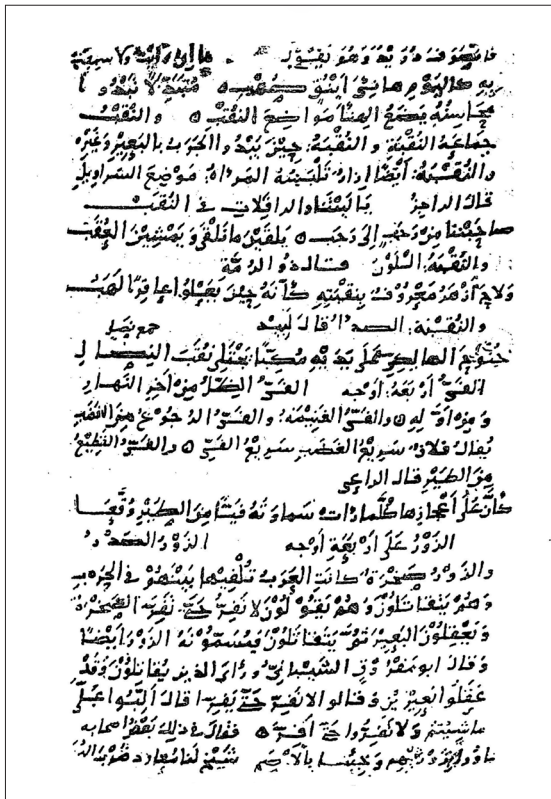 فاستعوفت دريد وهو يقول ما إن رأيت ولا سمعت
به كاليوم هاني أينق صهب متبذلا تبدو
محاسنه يضع الهناء مواضع النقب والنقب
جماعة النقبة والنقبة: حين يبدو الجرب بالبعير وغيره
والنقبة: أيضا إزار تلبسه المرأة، موضع السراويل
قال الراجز يا ليتنا والرافلات في النقب
صاحبتنا من رحب إلى رحب يلقين ما نلقى ويمشين العقب
والنقبة: اللون قال ذو الرمة
ولاح أزهر معروف بنقبته كأنه حين يعلو عاقرا لهب
والنقبة: الصدأ قال لبيد جمع نصل
جنوح الهالكي على يديه مكبا يجتلي نقب النصال
الفيء أربعة أوجه الفيء الظل من آخر النهار
ومن أوله والفيء الغنيمة، والفيء الرجوع من الغضب
يقال فلان سريع الغضب سريع الفيء والفيء القطيع
من الطير قال الراعي
كأن على أعجازها كلما رأت سماوته فيئا من الطير وقعا
الزور على أربعة أوجه الزور الصدر
والزور صخرة كانت العرب تلقيها بينهم في الحرب
وهم يتقاتلون وهم يقولون لا نفر حتى تفر الصخرة
ويعقلون البعير ثم يتقاتلون فيسمونه الزور أيضا
وقال أبو مفروق الشيباني ورأى الذين يقاتلون وقد
عقلوا بعيرين وقالوا لا نفر حتى يفرا قال اثبتوا على
ما شئتم ولا تفروا حتى أفر فقال في ذلك بعض أصحابه
جاؤوا بزوريهم وجئنا بالأصم شيخ لنا معاود ضرب البهم